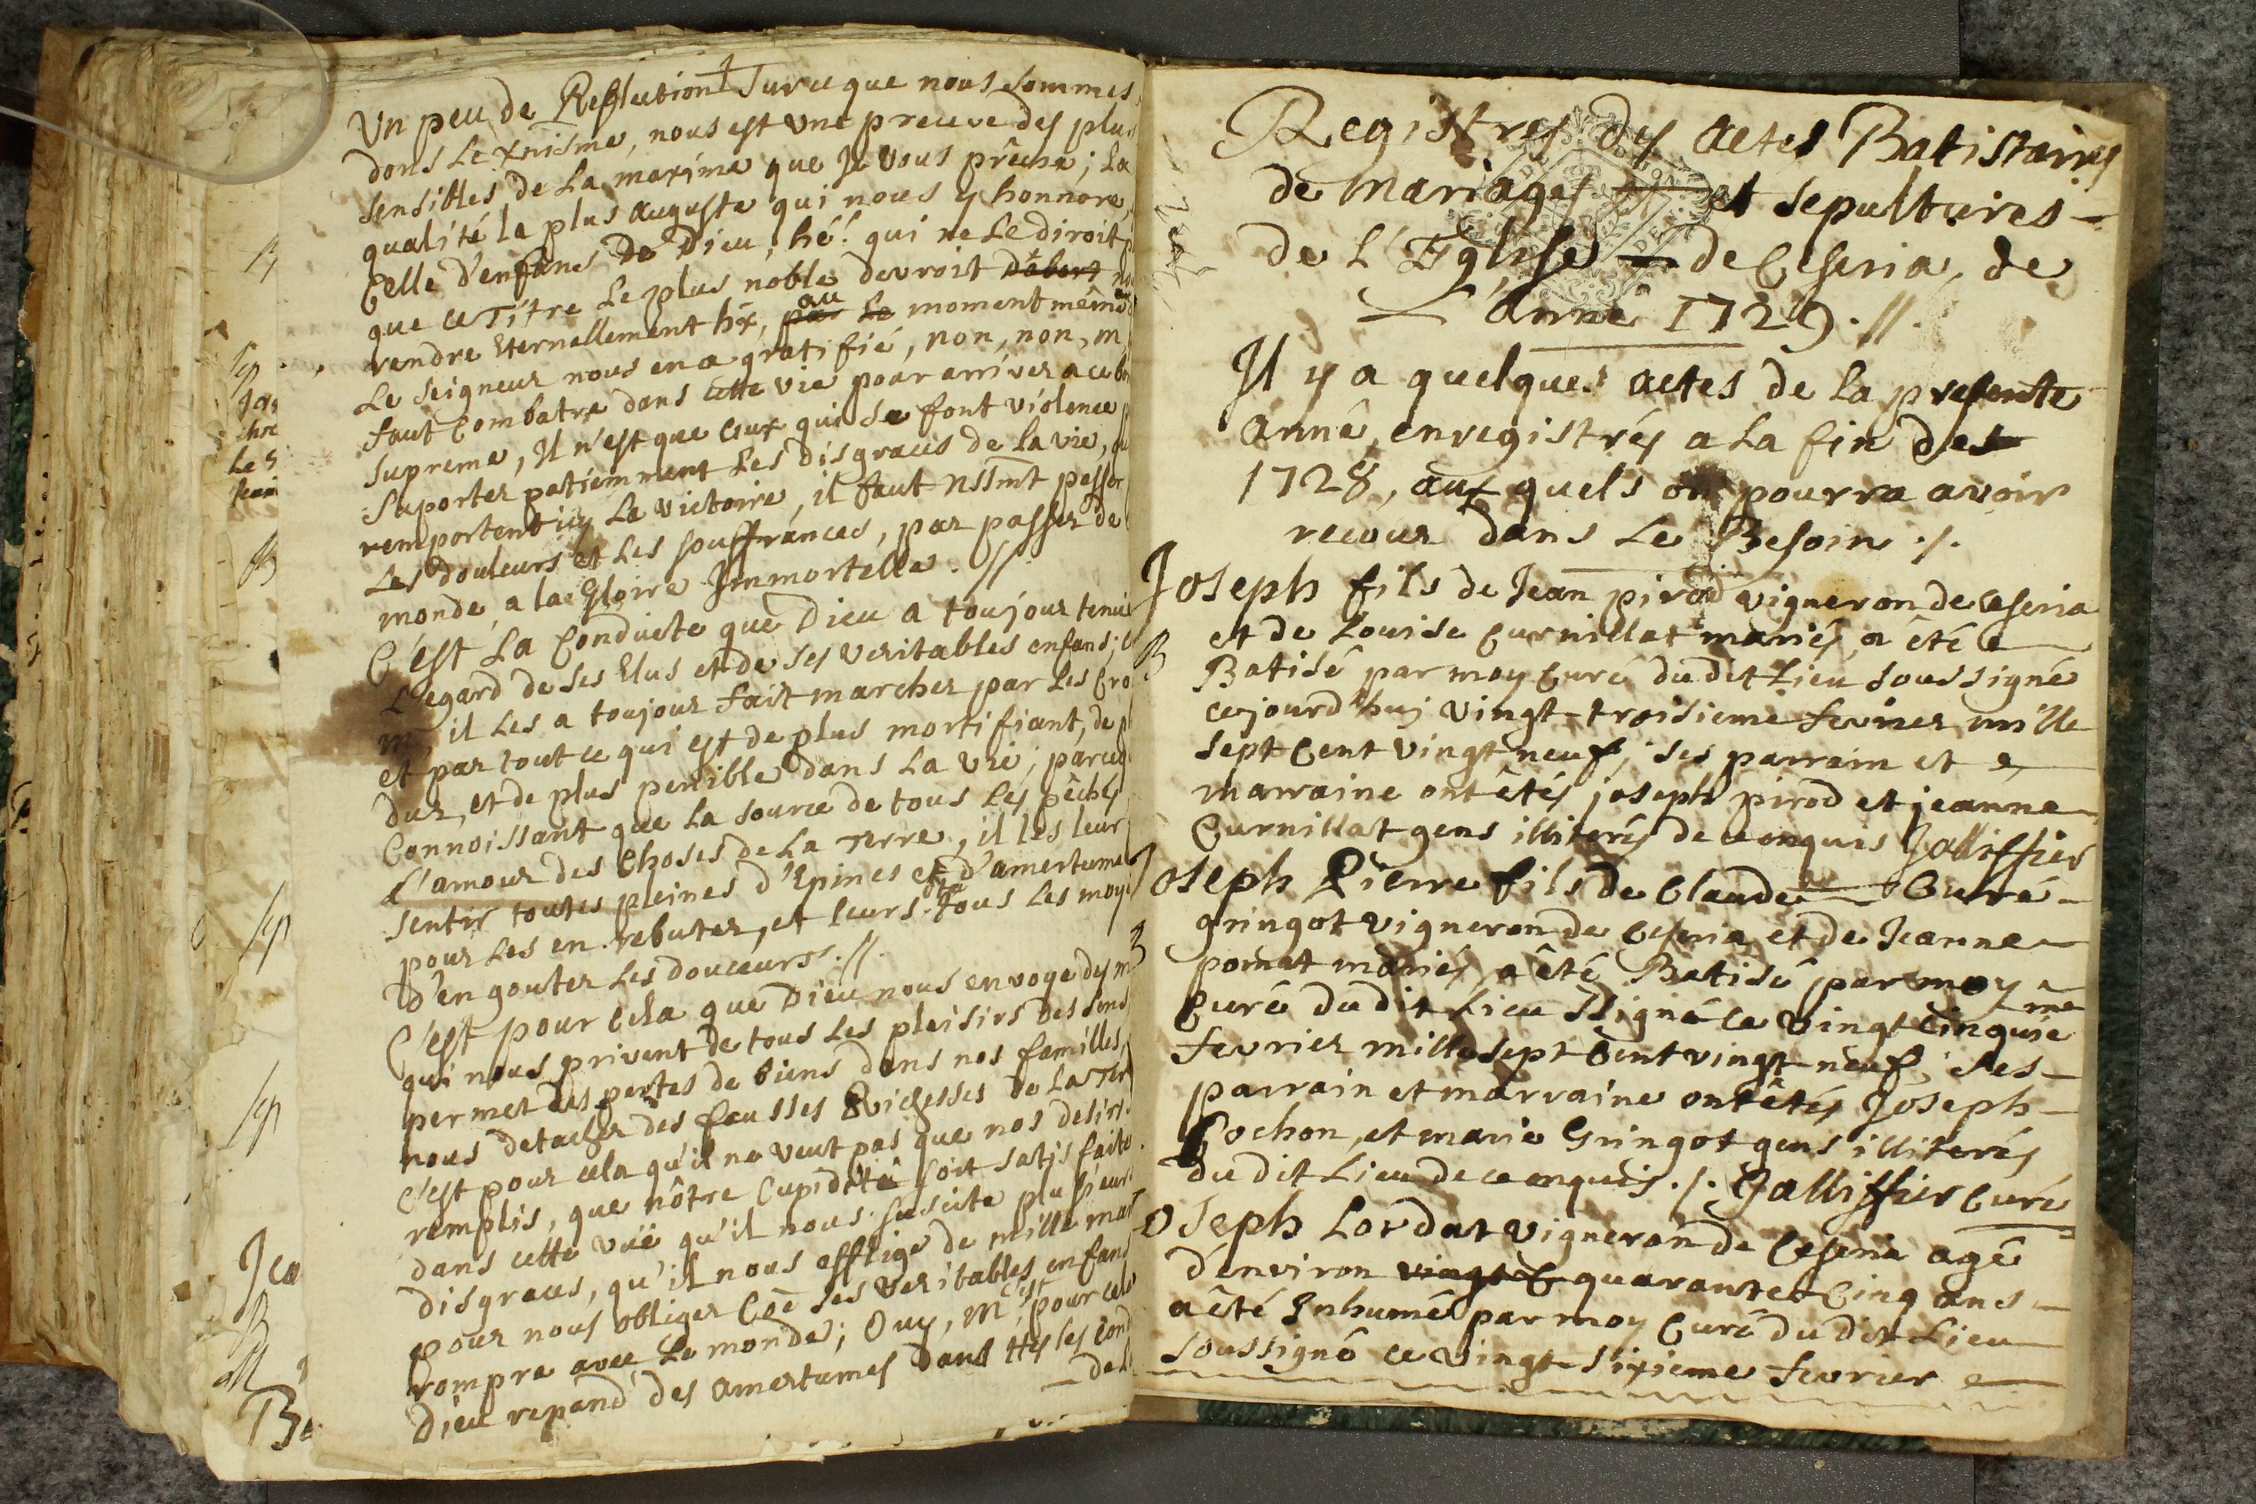 Un peu de Reflection sur ce que nous sommes
dans le xnisme, nous est une preuve des plus
sensibles de la maxime que Je vous prêche; la
qualité la plus auguste qui nous y honnore,
Celle d'enfans de Dieu; hé! qui ne le diroit
que ce Titre le plus noble devroit
rendre Eternellement hx, par le au moment même
Le Seigneur nous en a gratifié, non, non, m
faut Combatre dans cette vie pour arriver a ce
supreme, Il n'est que ceux qui se font violence
suporter patiemment Les disgraces de la vie,
remportent icy La victoire, il faut nssmt passer
Les douleurs et Les souffrances, par passer de
monde, a la Gloire Jmmortelle. //.
C'est La Conduite que Dieu a toujour tenüe
L'egard de ses Elus et de ses veritables enfans;
m, il Les a toujour fait marcher par les Cro
et par tout ce qui est de plus mortifiant, de pl
dur, et de plus penible dans La vie; parce
Connoissant que La source de tous Les pêchés
L'amour des Choses de La Terre, il les leur
sentir toutes pleines d'Epines et d'amertume
pour Les en rebuter, et leurs ôte tous Les moy
d'en gouter Les douceurs. //.
C'est pour Cela que Dieu nous envoye des m
qui nous privent de tous Les plaisirs des sens
permet des pertes de biens dans nos familles,
nous detacher des fausses Richesses de La Ter
C'est pour cela qu'il ne veut pas que nos desirs
remplis, que nôtre Cupidité soit satisfaite
dans cette vüe qu'il nous suscite plusieurs
disgraces, qu'il nous afflige de mille ma
pour nous obliger Coe ses veritables enfans
rompre avec Le monde; Ouy, m, c'est pour cela
Dieu repand des amertumes dans ttes les cond
de
Registres des actes Batistaires
de mariages et sepultures
de L'Eglise de Ceseria, de
L'annê 1729. //.
Il y a quelques actes de la presente
annê, enregistrés a La fin des
1728, aux quels on pourra avoir
recour dans Le Besoin ./.
Joseph fils de Jean pirod vigneron de Ceseria
et de Louise Curnillat mariés, a êté
B
Batisé par moy Curé dudit Lieu soussigné
cejourd'huj vingt-troisieme fevrier mille
sept Cent vingt neuf, ses parrain et
marraine ont êtés joseph pirod et jeanne
Curnillat gens illiterés de ce enquis Jalliffier
Curé
Joseph Pierre fils de Claude
gringot vigneron de Ceseria et de Jeanne
B
pomet mariés, a êté Batisé par moy
Curé dudit Lieu ssigné ce vingt Cinquieme
fevrier mille sept Cent vingt-neuf, ses
parrain et marraine ont êtés Joseph
Cochon, et marie Gringot gens illiterés
du dit Lieu de ce enquis ./. Jalliffier Curé
Joseph Lordat vigneron de Ceseria agê
d'environ vingt C quarante Cinq ans
a êté Inhumê par moy Curé du dit Lieu
soussigné ce vingt-sixieme fevrier